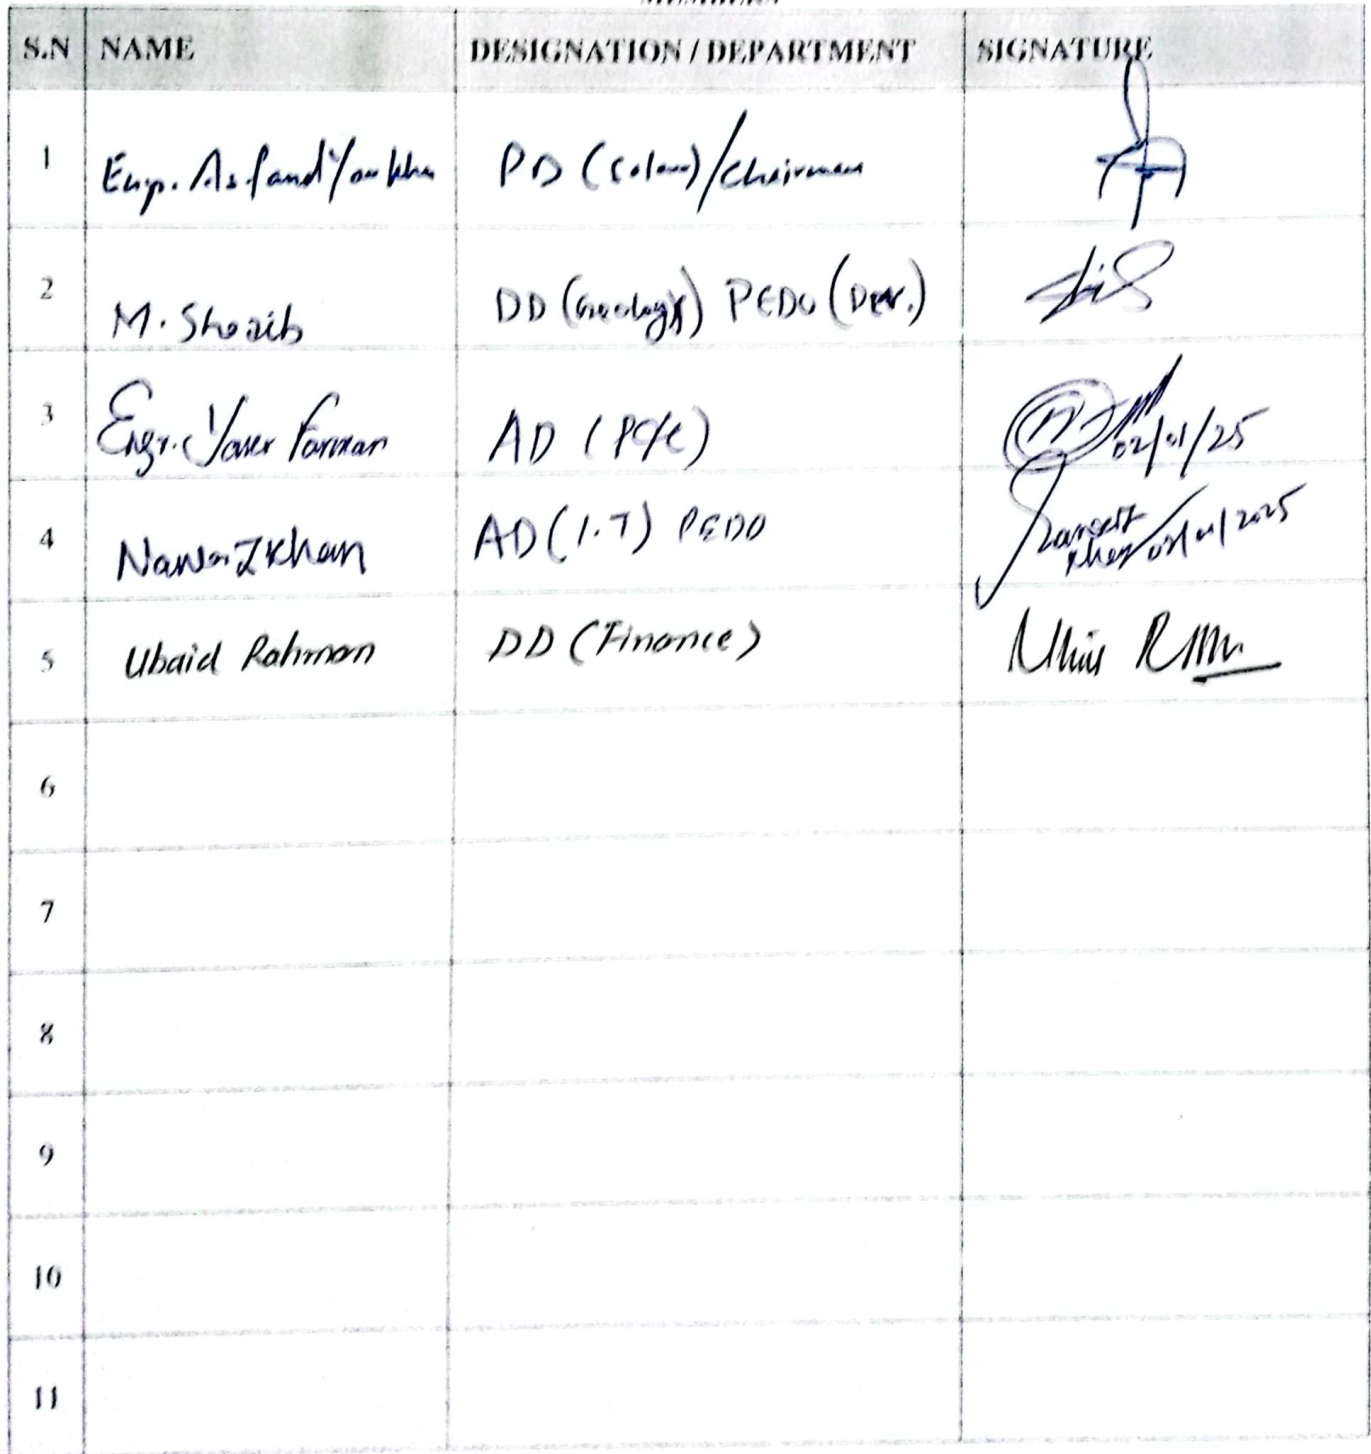 S.N NAME DESIGNATION / DEPARTMENT SIGNATURE
1 Engr. Asfand Yar Khan PD (Solar)/Chairman
2 M. Shoaib DD (Geology) PEDO (Dev.)
3 Engr. Yaser Farman AD (PC/C) 02/01/25
4 Nawaz Khan AD (I.T) PEDO 02/01/2025
5 Ubaid Rahman DD (Finance)
6
7
8
9
10
11